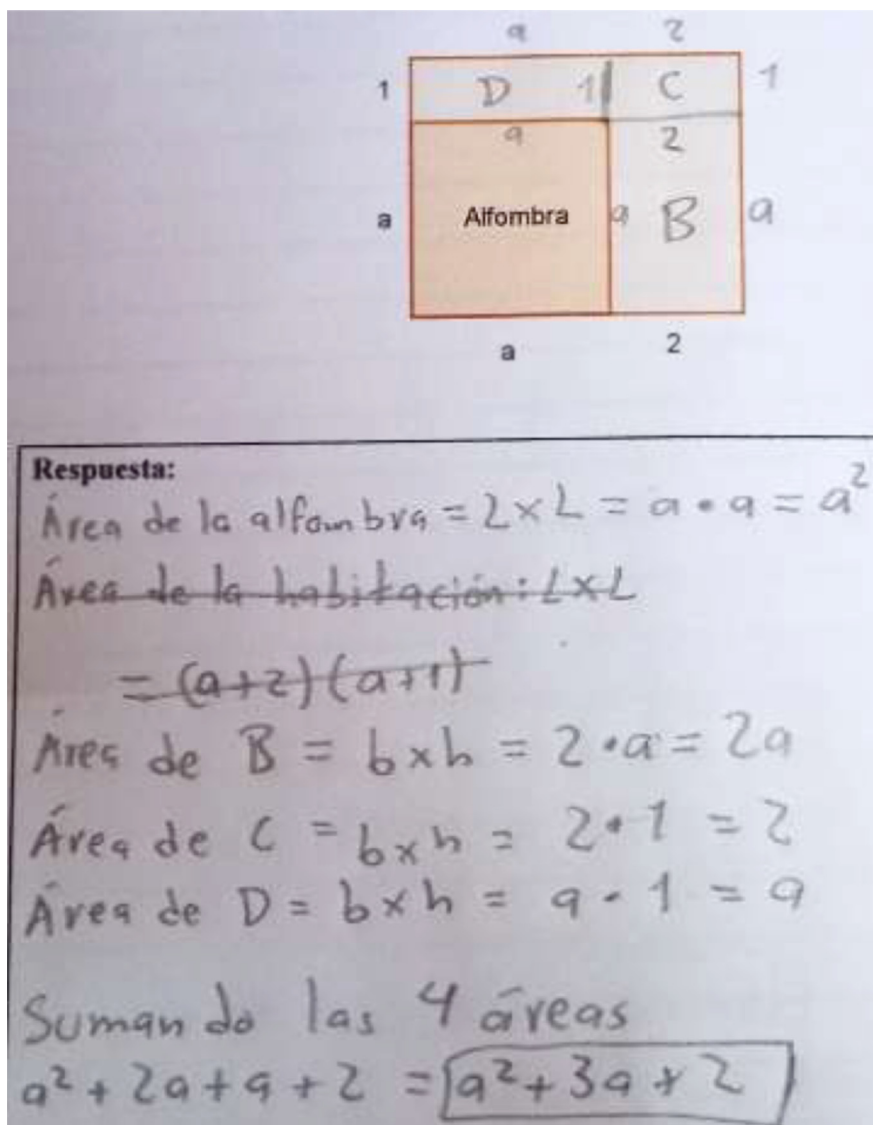 a 2
1 D 1 C 1
a 2
a Alfombra a B a
a 2
Respuesta:
Área de la alfombra = L × L = a • a = a²
Área de la habitación: L×L
= (a+2)(a+1)
Área de B = b×h = 2 • a = 2a
Área de C = b×h = 2 • 1 = 2
Área de D = b×h = a • 1 = a
Sumando las 4 áreas
a² + 2a + a + 2 = a² + 3a + 2